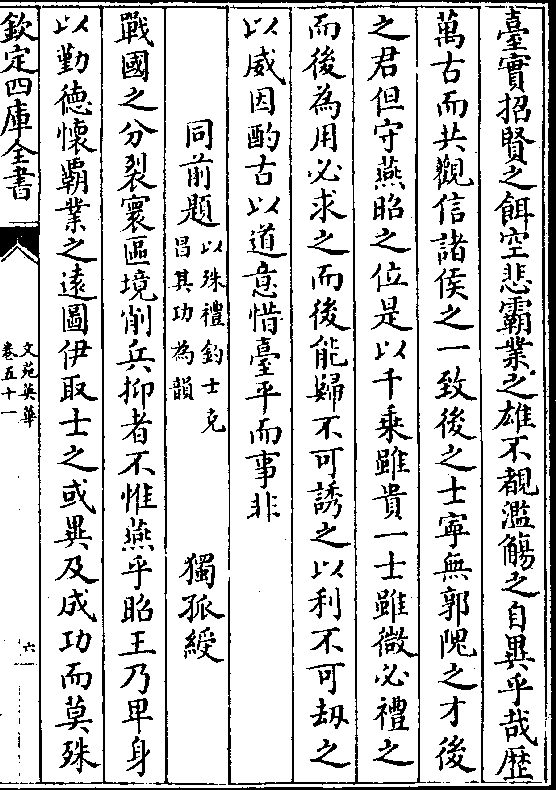 臺實招賢之餌空悲霸業之雄不覩濫觴之自異乎哉歴
萬古而共觀信諸侯之一致後之士寧無郭隗之才後
之君但守燕昭之位是以千乗雖貴一士雖微必禮之
而後為用必求之而後能歸不可誘之以利不可刼之
以威因酌古以道意惜臺平而事非
同前題以殊禮釣士克昌其功為韻 獨孤綬
戰國之分裂寰區境削兵抑者不惟燕乎昭王乃卑身
以勤德懷霸業之遠圖伊取士之或異及成功而莫殊
欽定四庫全書
文苑英華
卷五十一
六